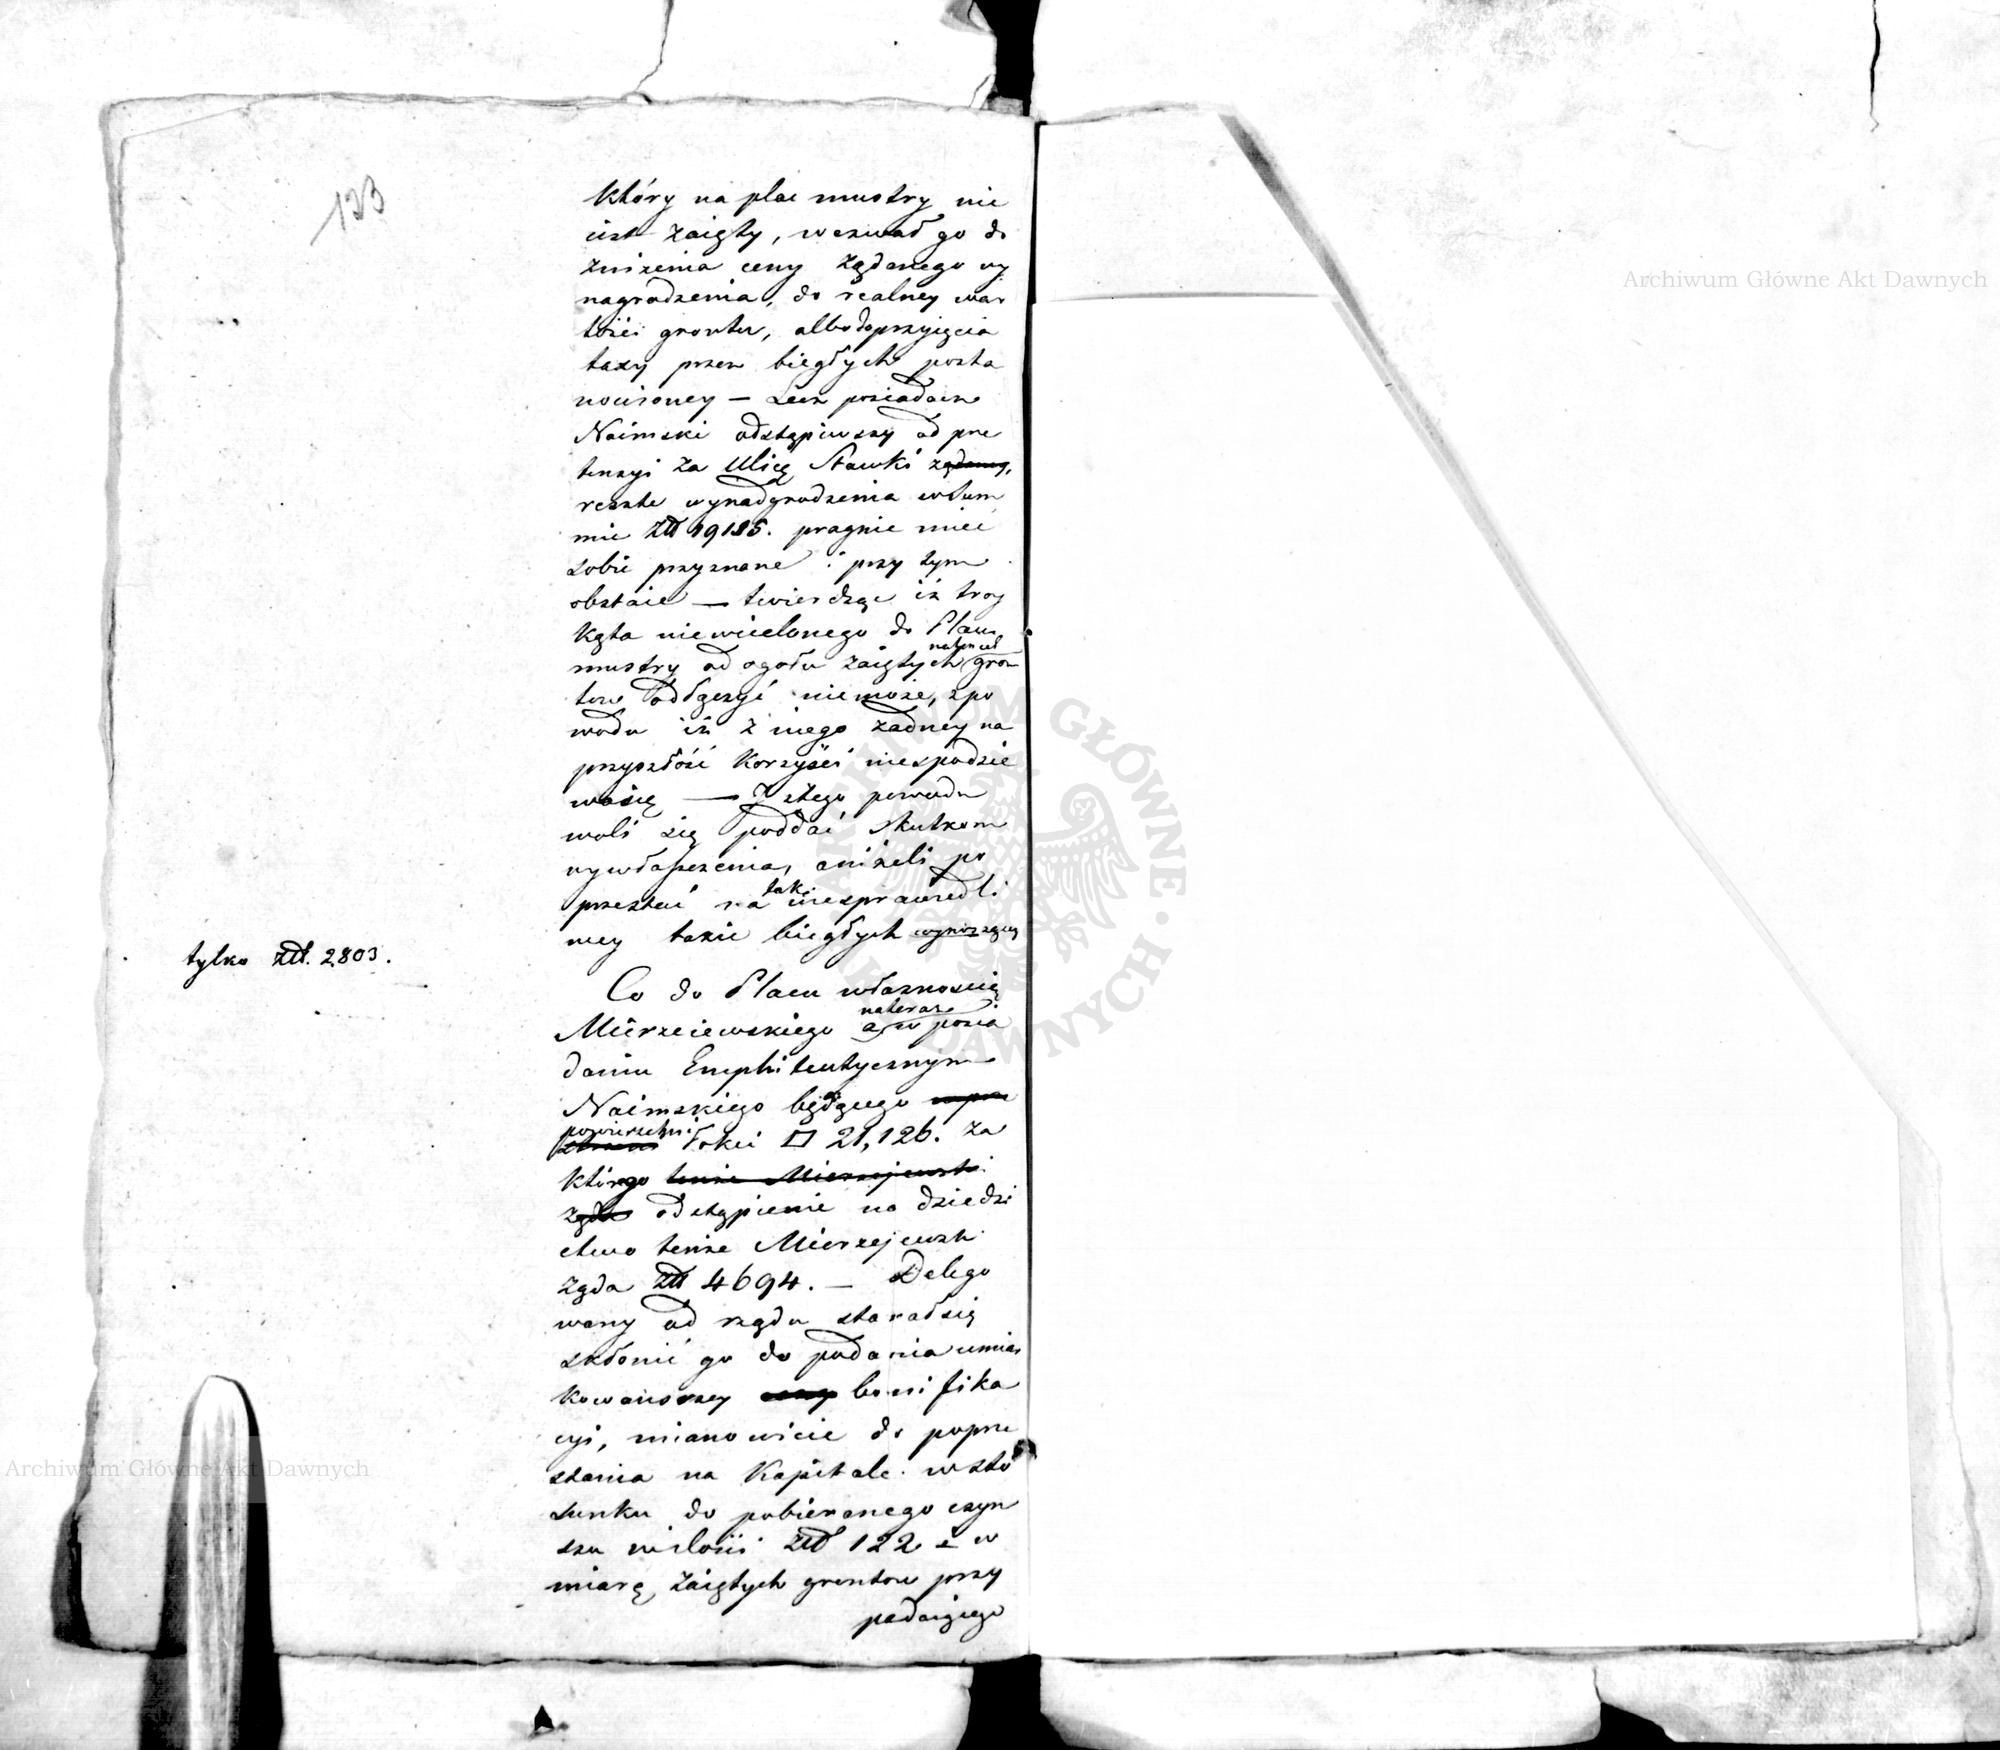 133
który na plac mustry nie
iest zaięty, wezwał go do
zniżenia ceny żądanego wy
nagrodzenia, do realney war
tości gruntu, albo do przyięcia
taxy przez biegłych posta
nowioney — Lecz posiadacz
Naimski odstąpiwszy od pre
tensyi za Ulicę Stawki żądaney,
resztę wynadgrodzenia w Sum
mie Złł 19185. pragnie mieć
sobie przyznane i przy tym
obstaie — twierdząc iż troy
kąta niewcielonego do Placu
mustry od ogołu zaiętych gron
tow odłączyć niemoże, z po
wodu iż z niego żadney na
przyszłość korzyści niespodzie
wa się — Z tego powodu
woli się poddać skutkom
wywłaszczenia, aniżeli po
przestać na tak niesprawiedli
wey taxie biegłych wynoszącey
tylko złł. 2803.
Co do Placu własnością
Mierzeiewskiego a w posia
daniu Emphiteutycznym
Naimskiego będącego
powierzchni łokci □ 21,126. za
którego tenże Mierzejewski
żąda odstąpienie na dziedzi
ctwo tenże Mierzejewski
żąda złł 4694. — Delego
wany od rządu starał się
skłonić go do podania umiar
kowańszey bonifika
cyi, mianowicie do poprze
stania na Kapitale w sto
sunku do pobieranego czyn
szu w ilości Złł 122 i w
miarę zaiętych gruntow przy
padaiącego
Archiwum Główne Akt Dawnych
Archiwum Główne Akt Dawnych
ARCHIWUM GŁÓWNE AKT DAWNYCH